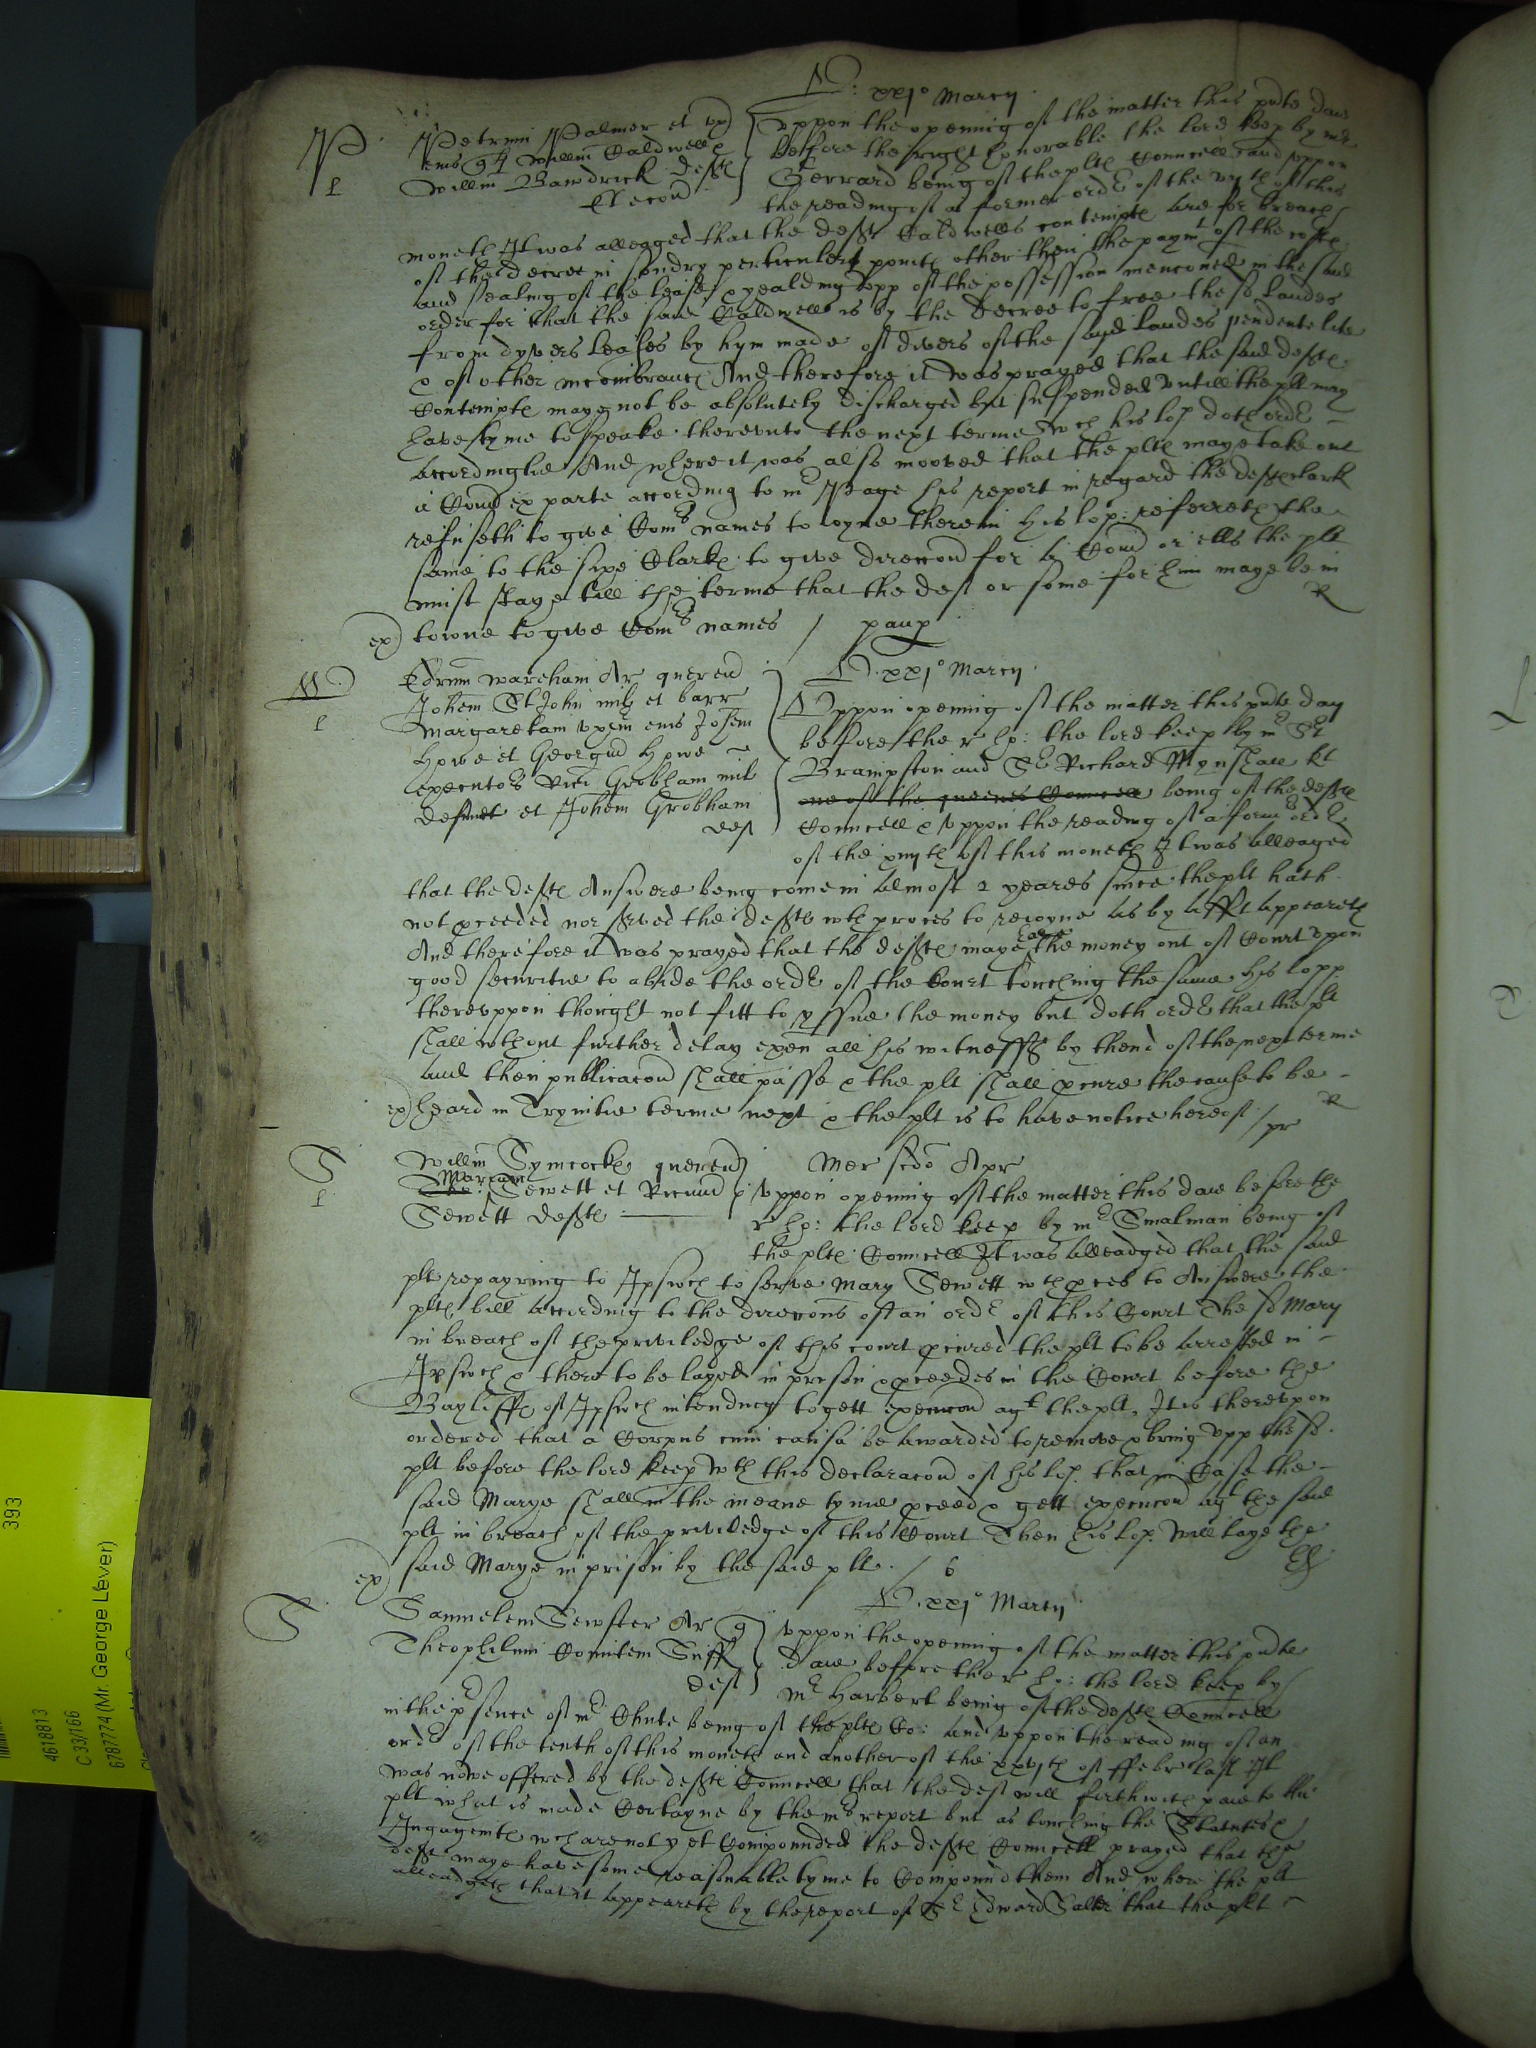 D: xxjo Marcij
P. Petrum Palmer et vx)
eius qt Willm Caldwell &
Willm Bawdrick deftes
Elecond
vppon the openinge of the matter this pnte daie
before the right honorable the lord keep by mr
Gerrard being of the pltes Councell and vppon
the reading of a former ordr of the vjth of this
moneth It was alleaged that the deft Caldwells contempte are for breach
of the decree in sondry perticuler pointes other then the paymt of the costes
and sealing of the leases & yealding vpp of the possession mencioned in the said
order for that the said Caldwell is by the Decree to free the sd landes
from dyvers leases by hym made of divers of the said landes pendente lite
& of other incombrances And therefore it was prayed that the said deftes
Contempte maye not be absolutely discharged but suspended vntill the plt may
have tyme to speake therevnto the next terme wch his lop doth ordr
accordinglie And where it was also mooved that the plte maye take out
a Comd ex parte according to mr Page his report in regard the deftes clark
refuseth to give Comrs names to ioyne therein his lop: referreth the
same to the sixe Clarkes to give direccond for a Comd or ells the plt
must staye till the terme that the deft or some for him maye be in
ex) towne to give Comrs names / paup R
M
Edrum Wareham Ar querend
Johem St John milt et barr
Margaretam vxem eius Johem
Howe et Georgiu Howe
executors Rici Grobham milt
defunct et Johem Grobham
def
D. xxjo Marcij
Vppon opening of the matter this pnte day
before the r ho: the lord keep by mr Sr
Brampston and Sr Richard Mynshall kt
one of the queenes Councell being of the deftes
Councell & vppon the reading of a form ordr
of the xiijth of this moneth It was alleaged
that the deftes Answere being come in almost 2 yeares since the plt hath
not pceeded nor served the deftes wth proces to reioyne as by afft appeareth
And therefore it was prayed that the deftes maye have the money out of Court vpon
good securitie to abide the ordr of the Court touching the same his lopp
therevppon thought not fitt to yssue the money but doth ordr that the plt
shall wthout further delay exen all his witnesses by thend of the next terme
and then publicacond shall passe & the plt shall pcure the cause to be
ex) heard in Trynitie terme next & the plt is to have notice hereof / pr R
S
Willm Symcockes querend
Mariam
Sewett et Ricum
Sewett deftes
Mer scdo Apr
vppon opening of the matter this daie before the
r ho: the lord keep by mr Smalman being of
the pltes Councell It was alleadged that the said
plt repayring to Ipswch to serve Mary Sewett wth pces to Answere the
pltes bill according to the direcons of an ordr of this Court The sd Mary
in breach of the priviledge of this court pcured the plt to be arrested in
Ipswch & there to be layed in prison & pceedes in the Court before the
Bayliffes of Ipswch intending to gett execucond agt the plt, It is therevpon
ordered that a Corpus cum causa be awarded to remove & bring vpp the sd
plt before the lord keep wth this declaracond of his lop. that in Case the
said Marye shall in the meane tyme pceed & gett execucond agt the said
plt in breach of the priviledge of this Court Then his lop. will laye the
ex) said Marye in prison by the said plt. / 6
S
Samuelem Sewster Ar q
Theophilum Comitem Suff
deft
D. xxjo Marcij
vppon the opening of the matter this pnte
daie before the r ho: the lord keep by
mr Harbert being of the deftes Councell
in the psence of mr Chute being of the pltes Co: and vppon the reading of an
ordr of the tenth of this moneth and another of the xxvjth of ffebr last It
was nowe offered by the deftes Councell that the deft will forthwith paie to the
plt what is made Certayne by the mrs report but as touching the Statutes &
Ingagemtes wch are not yet Compounded the deftes Councell prayed that the
deft maye have some reasonable tyme to Compound them And where the plt
alleadgeth that it appeareth by the report of Sr Edward Salter that the plt
393
4618813
C 33/166
6787774 (Mr. George Lever)